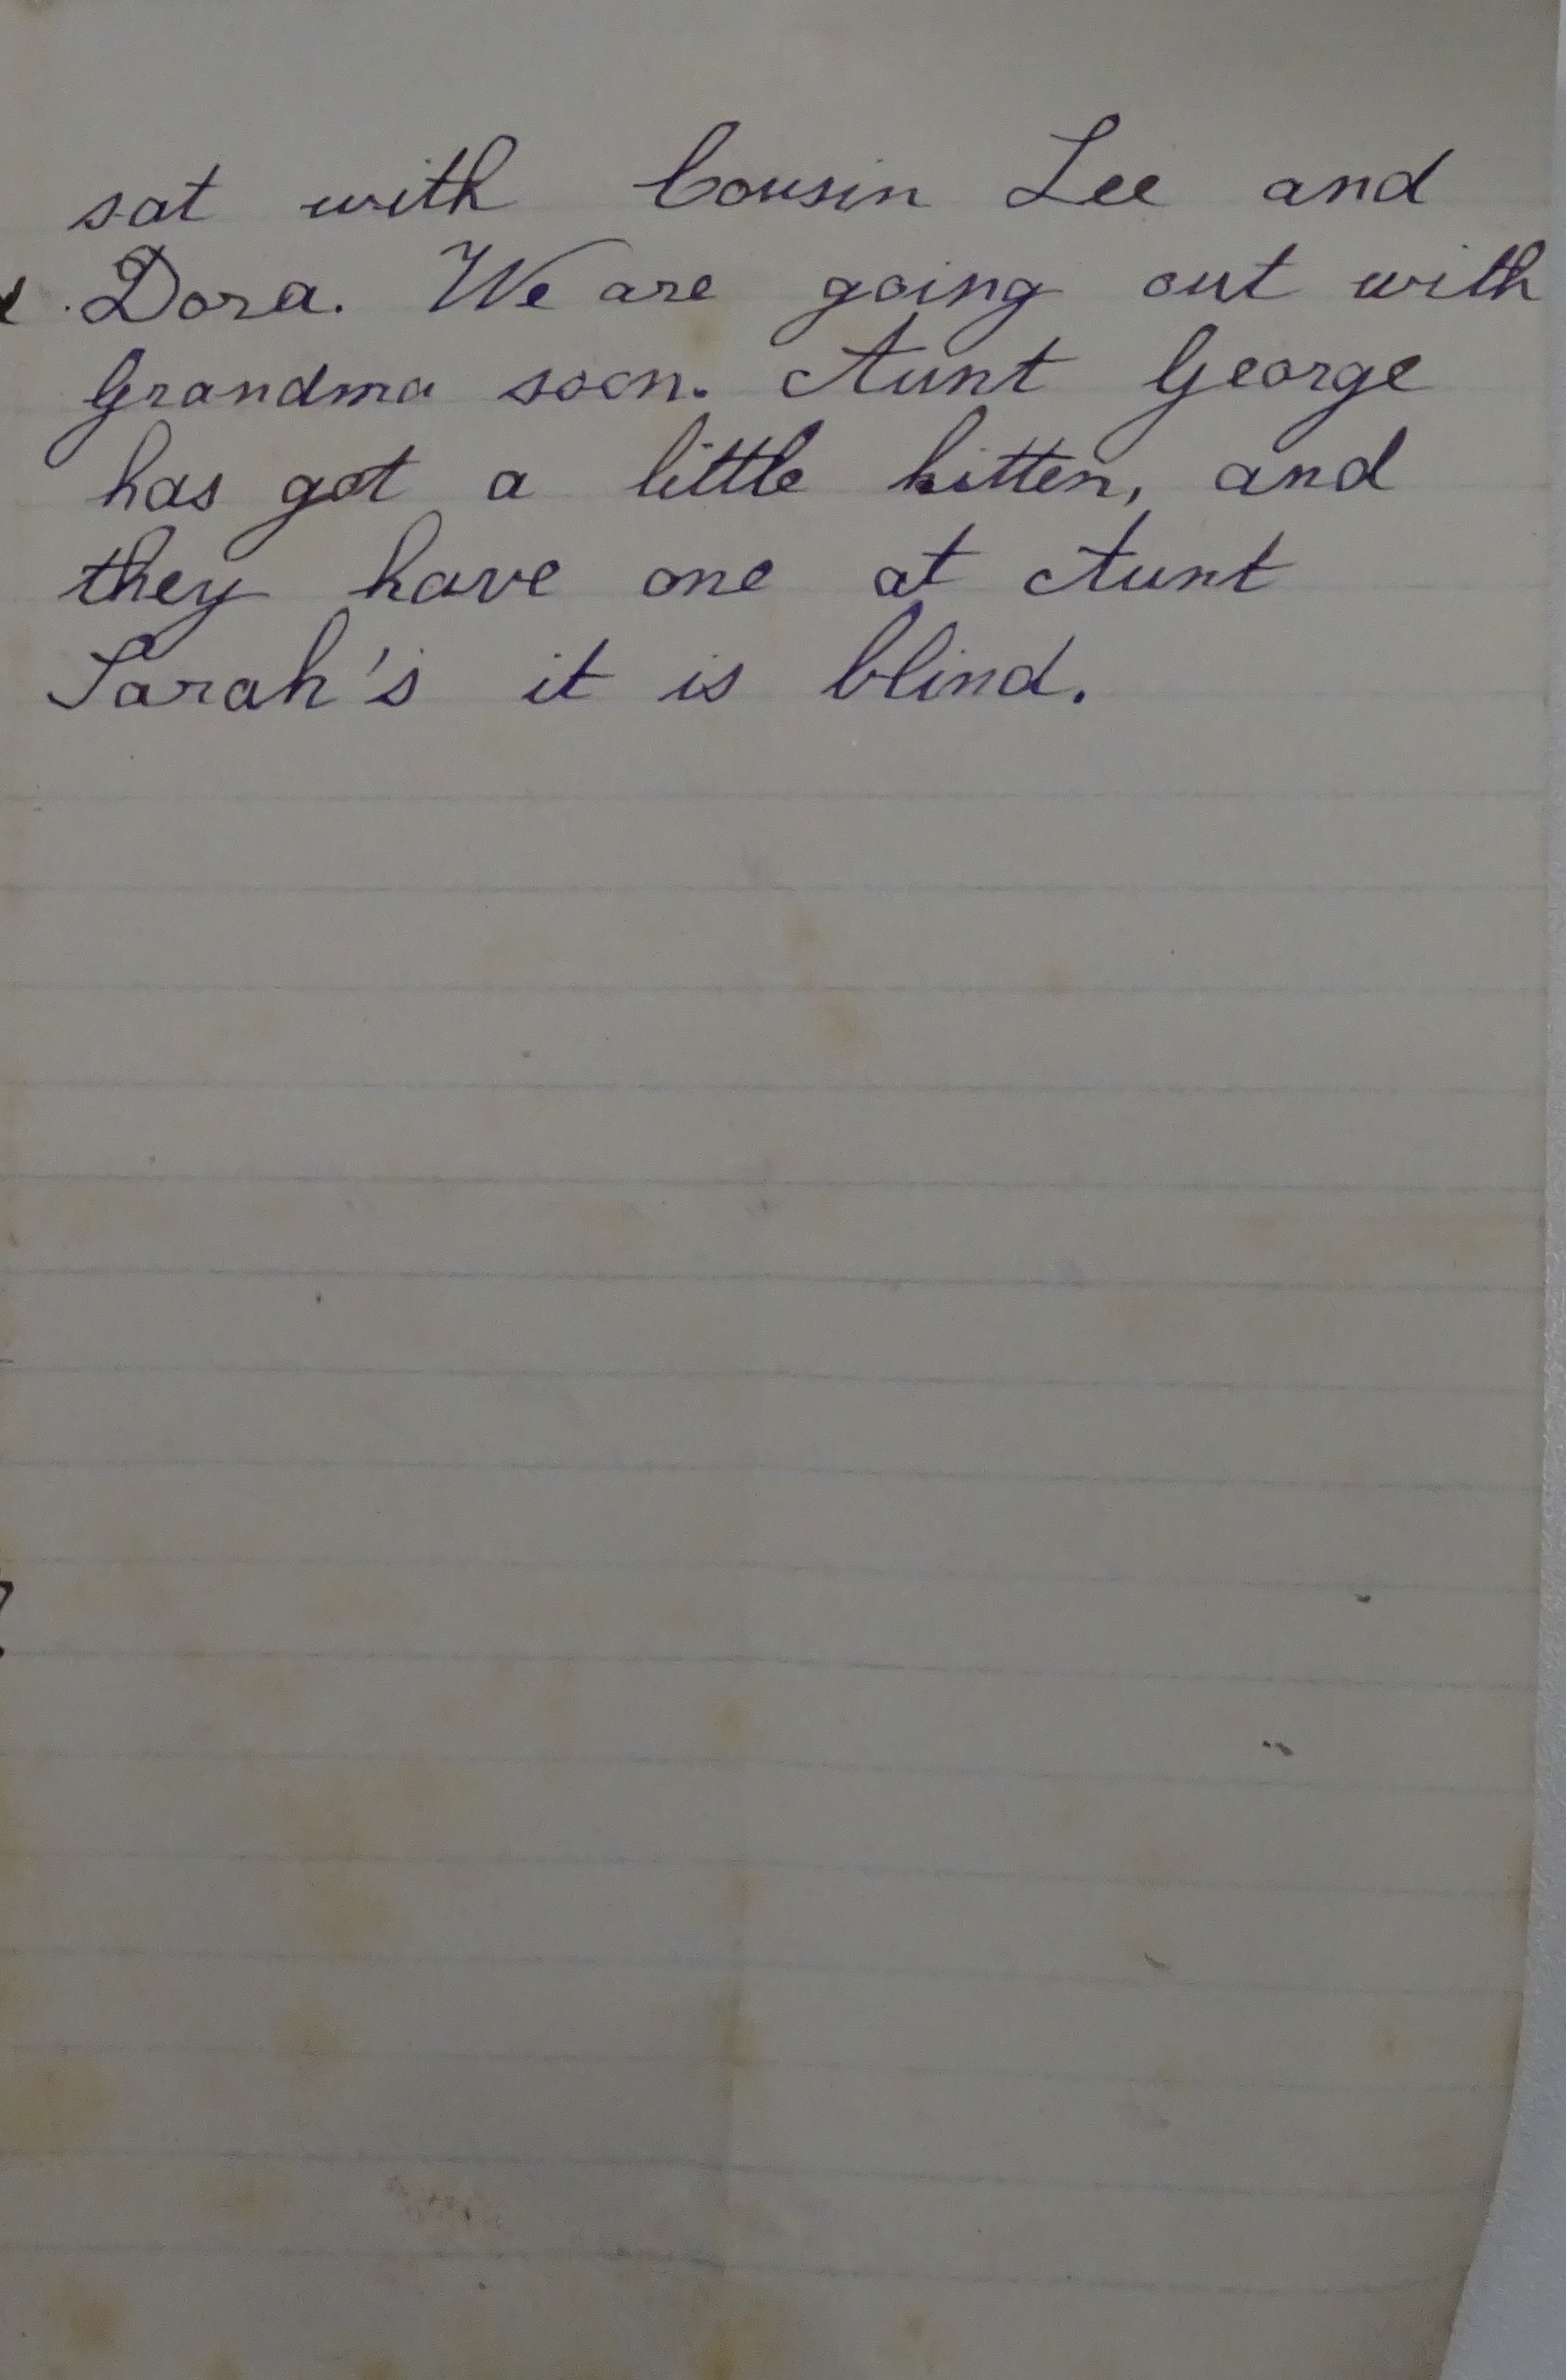 sat with Cousin Lee and
Dora. We are going out with
Grandma soon. Aunt George
has got a little kitten, and
they have one at Aunt
Sarah's it is blind.